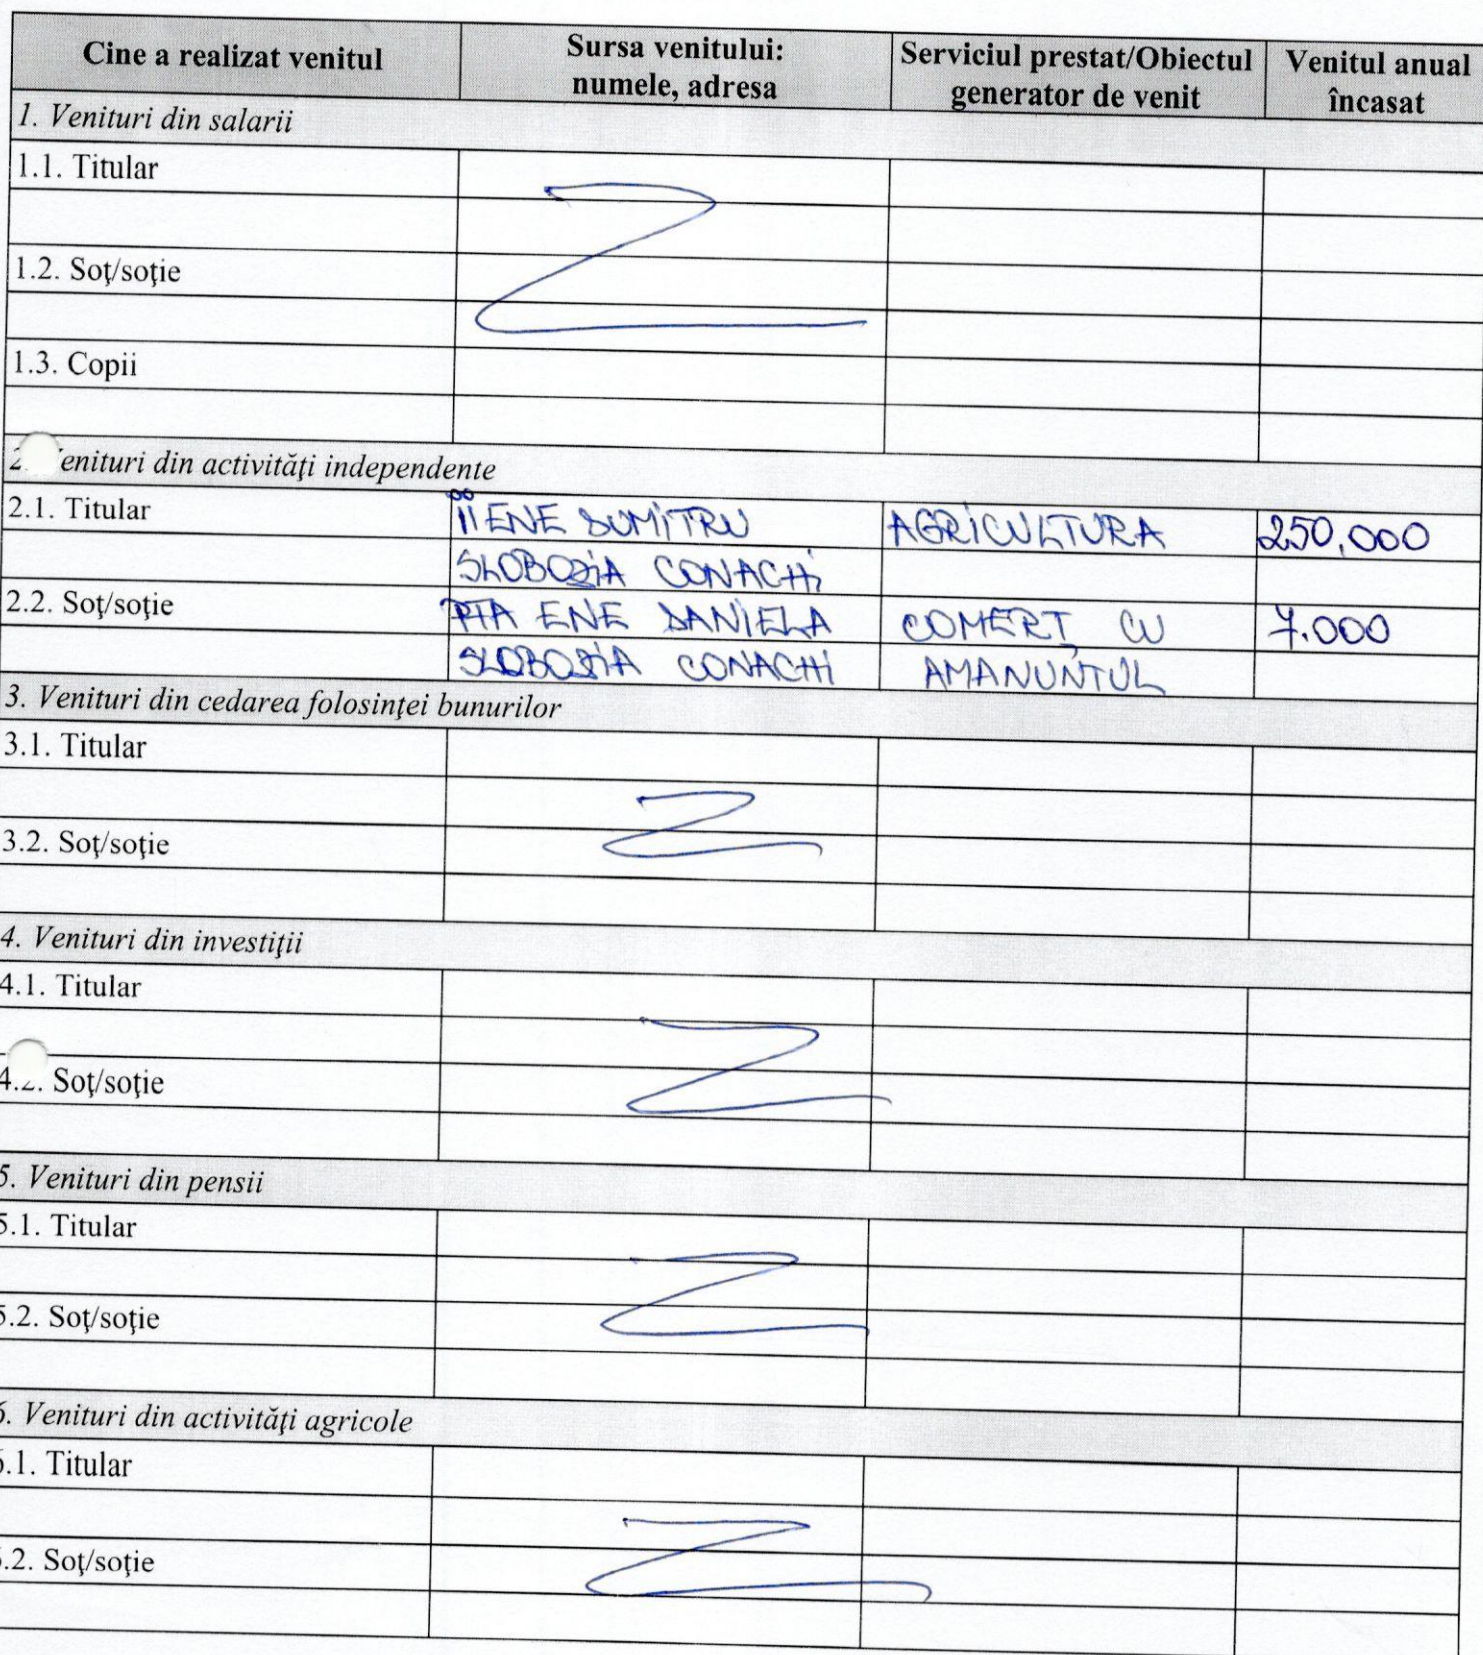 Cine a realizat venitul
Sursa venitului:
numele, adresa
Serviciul prestat/Obiectul
generator de venit
Venitul anual
încasat
1. Venituri din salarii
1.1. Titular
1.2. Soţ/soţie
1.3. Copii
2. enituri din activităţi independente
2.1. Titular
ÎI ENE DUMITRU
AGRICULTURA
250.000
SLOBOZIA CONACHI
2.2. Soţ/soţie
ENE DANIELA
COMERŢ CU
7.000
SLOBOZIA CONACHI
AMANUNTUL
3. Venituri din cedarea folosinţei bunurilor
3.1. Titular
3.2. Soţ/soţie
4. Venituri din investiţii
4.1. Titular
4.2. Soţ/soţie
5. Venituri din pensii
5.1. Titular
5.2. Soţ/soţie
6. Venituri din activităţi agricole
6.1. Titular
6.2. Soţ/soţie